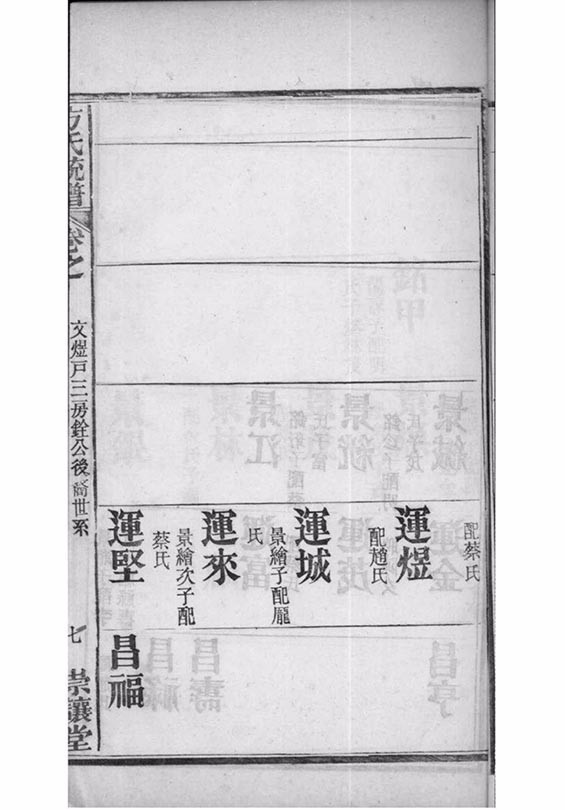 配蔡氏
運煜
配趙氏
運城
景繪子配龐
氏
運來
景繪次子配
蔡氏
運堅
昌福
方氏統譜
卷之一
文煜戸三房銓公後裔世系
七
崇讓堂